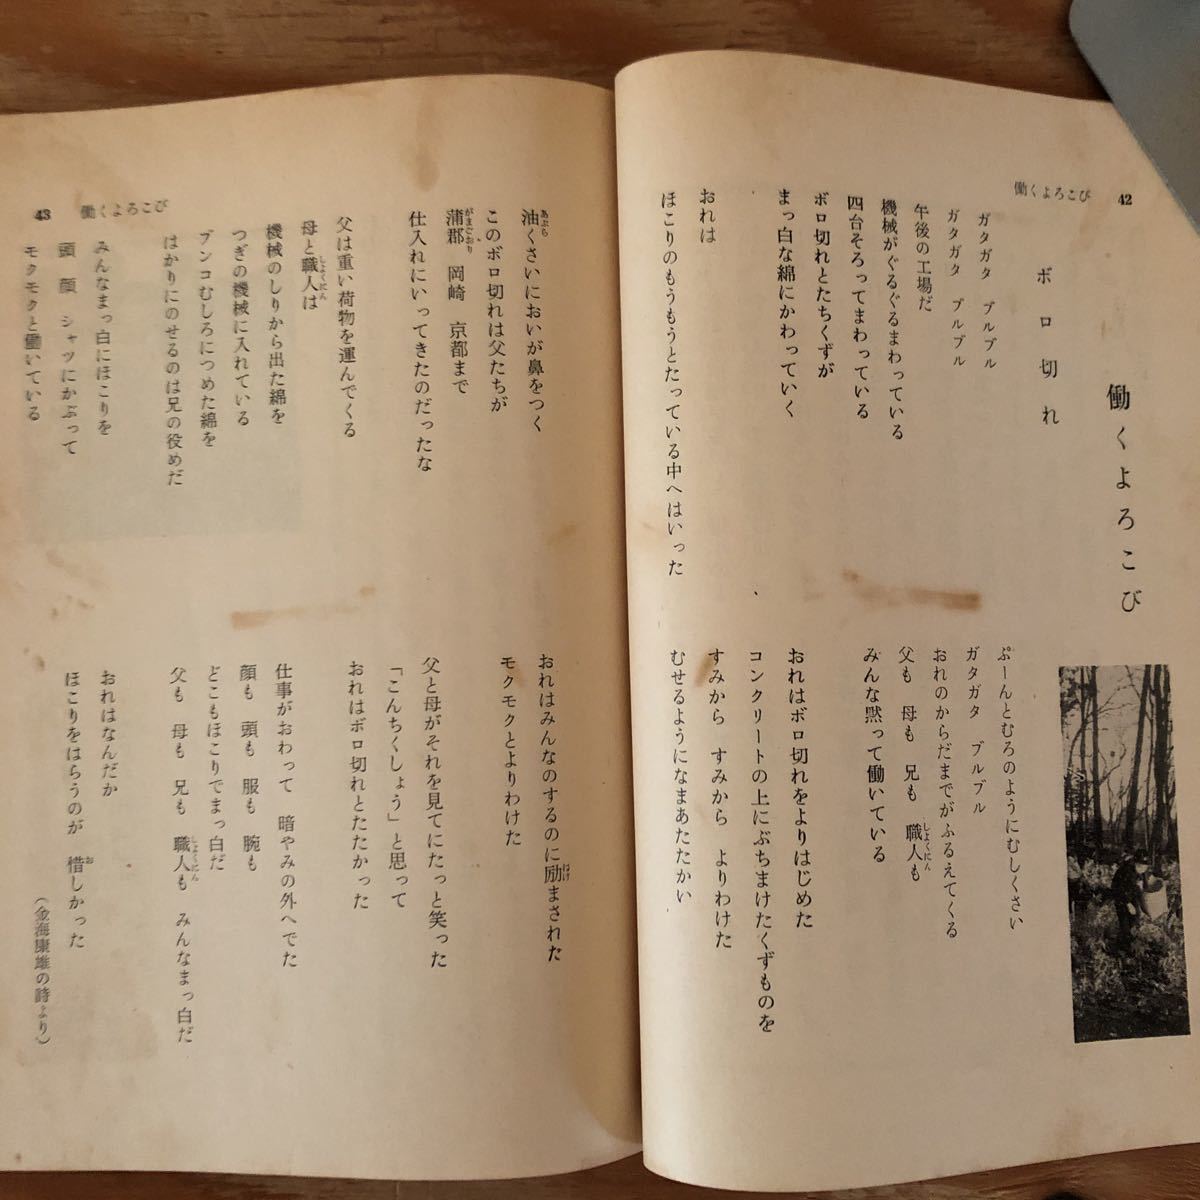 42
働くよろこび
働くよろこび
ボロ切れ
ガタガタ　ブルブル
ガタガタ　ブルブル
午後の工場だ
機械がぐるぐるまわっている
四台そろってまわっている
ボロ切れとたちくずが
まっ白な綿にかわっていく
おれは
ほこりのもうもうとたっている中へはいった
ぷーんとむろのようにむしくさい
ガタガタ　ブルブル
おれのからだまでがふるえてくる
父も　母も　兄も　職人も
しょくにん
みんな黙って働いている
おれはボロ切れをよりはじめた
コンクリートの上にぶちまけたくずものを
すみから　すみから　よりわけた
むせるようになまあたたかい
油くさいにおいが鼻をつく
あぶら
このボロ切れは父たちが
蒲郡　岡崎　京都まで
がまごおり
仕入れにいってきたのだったな
父は重い荷物を運んでくる
母と職人は
しょくにん
機械のしりから出た綿を
つぎの機械に入れている
ブンコむしろにつめた綿を
はかりにのせるのは兄の役めだ
みんなまっ白にほこりを
頭　顔　シャツにかぶって
モクモクと働いている
おれはみんなのするのに励まされた
はげ
モクモクとよりわけた
父と母がそれを見てにたっと笑った
「こんちくしょう」と思って
おれはボロ切れとたたかった
仕事がおわって　暗やみの外へでた
顔も　頭も　服も　腕も
どこもほこりでまっ白だ
父も　母も　兄も　職人も　みんなまっ白だ
しょくにん
おれはなんだか
ほこりをはらうのが　惜しかった
お
（金海康雄の詩より）
働くよろこび
43